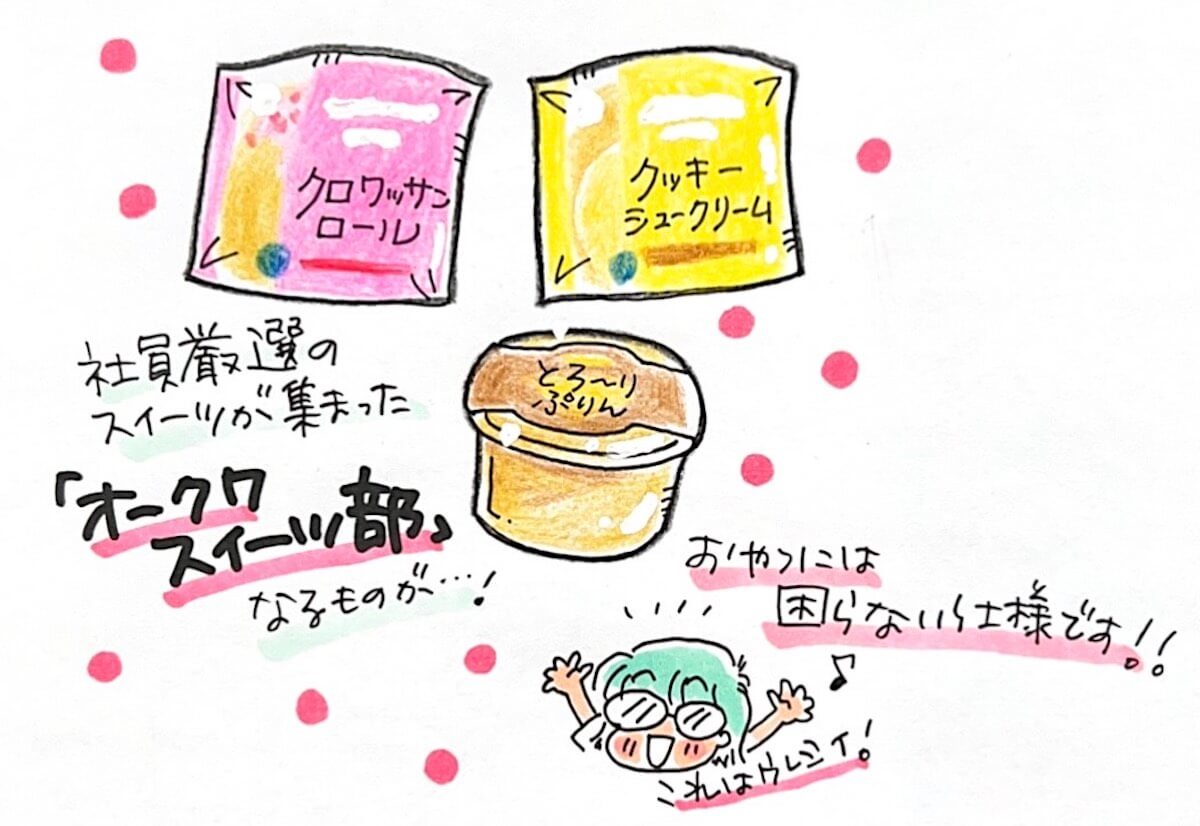 クロワッサン
ロール
クッキー
シュークリーム
とろ〜り
ぷりん
社員厳選の
スイーツが集まった
「オークワ
スイーツ部」
なるものが…!
おやつには
困らない仕様です!!
これはウレシイ!